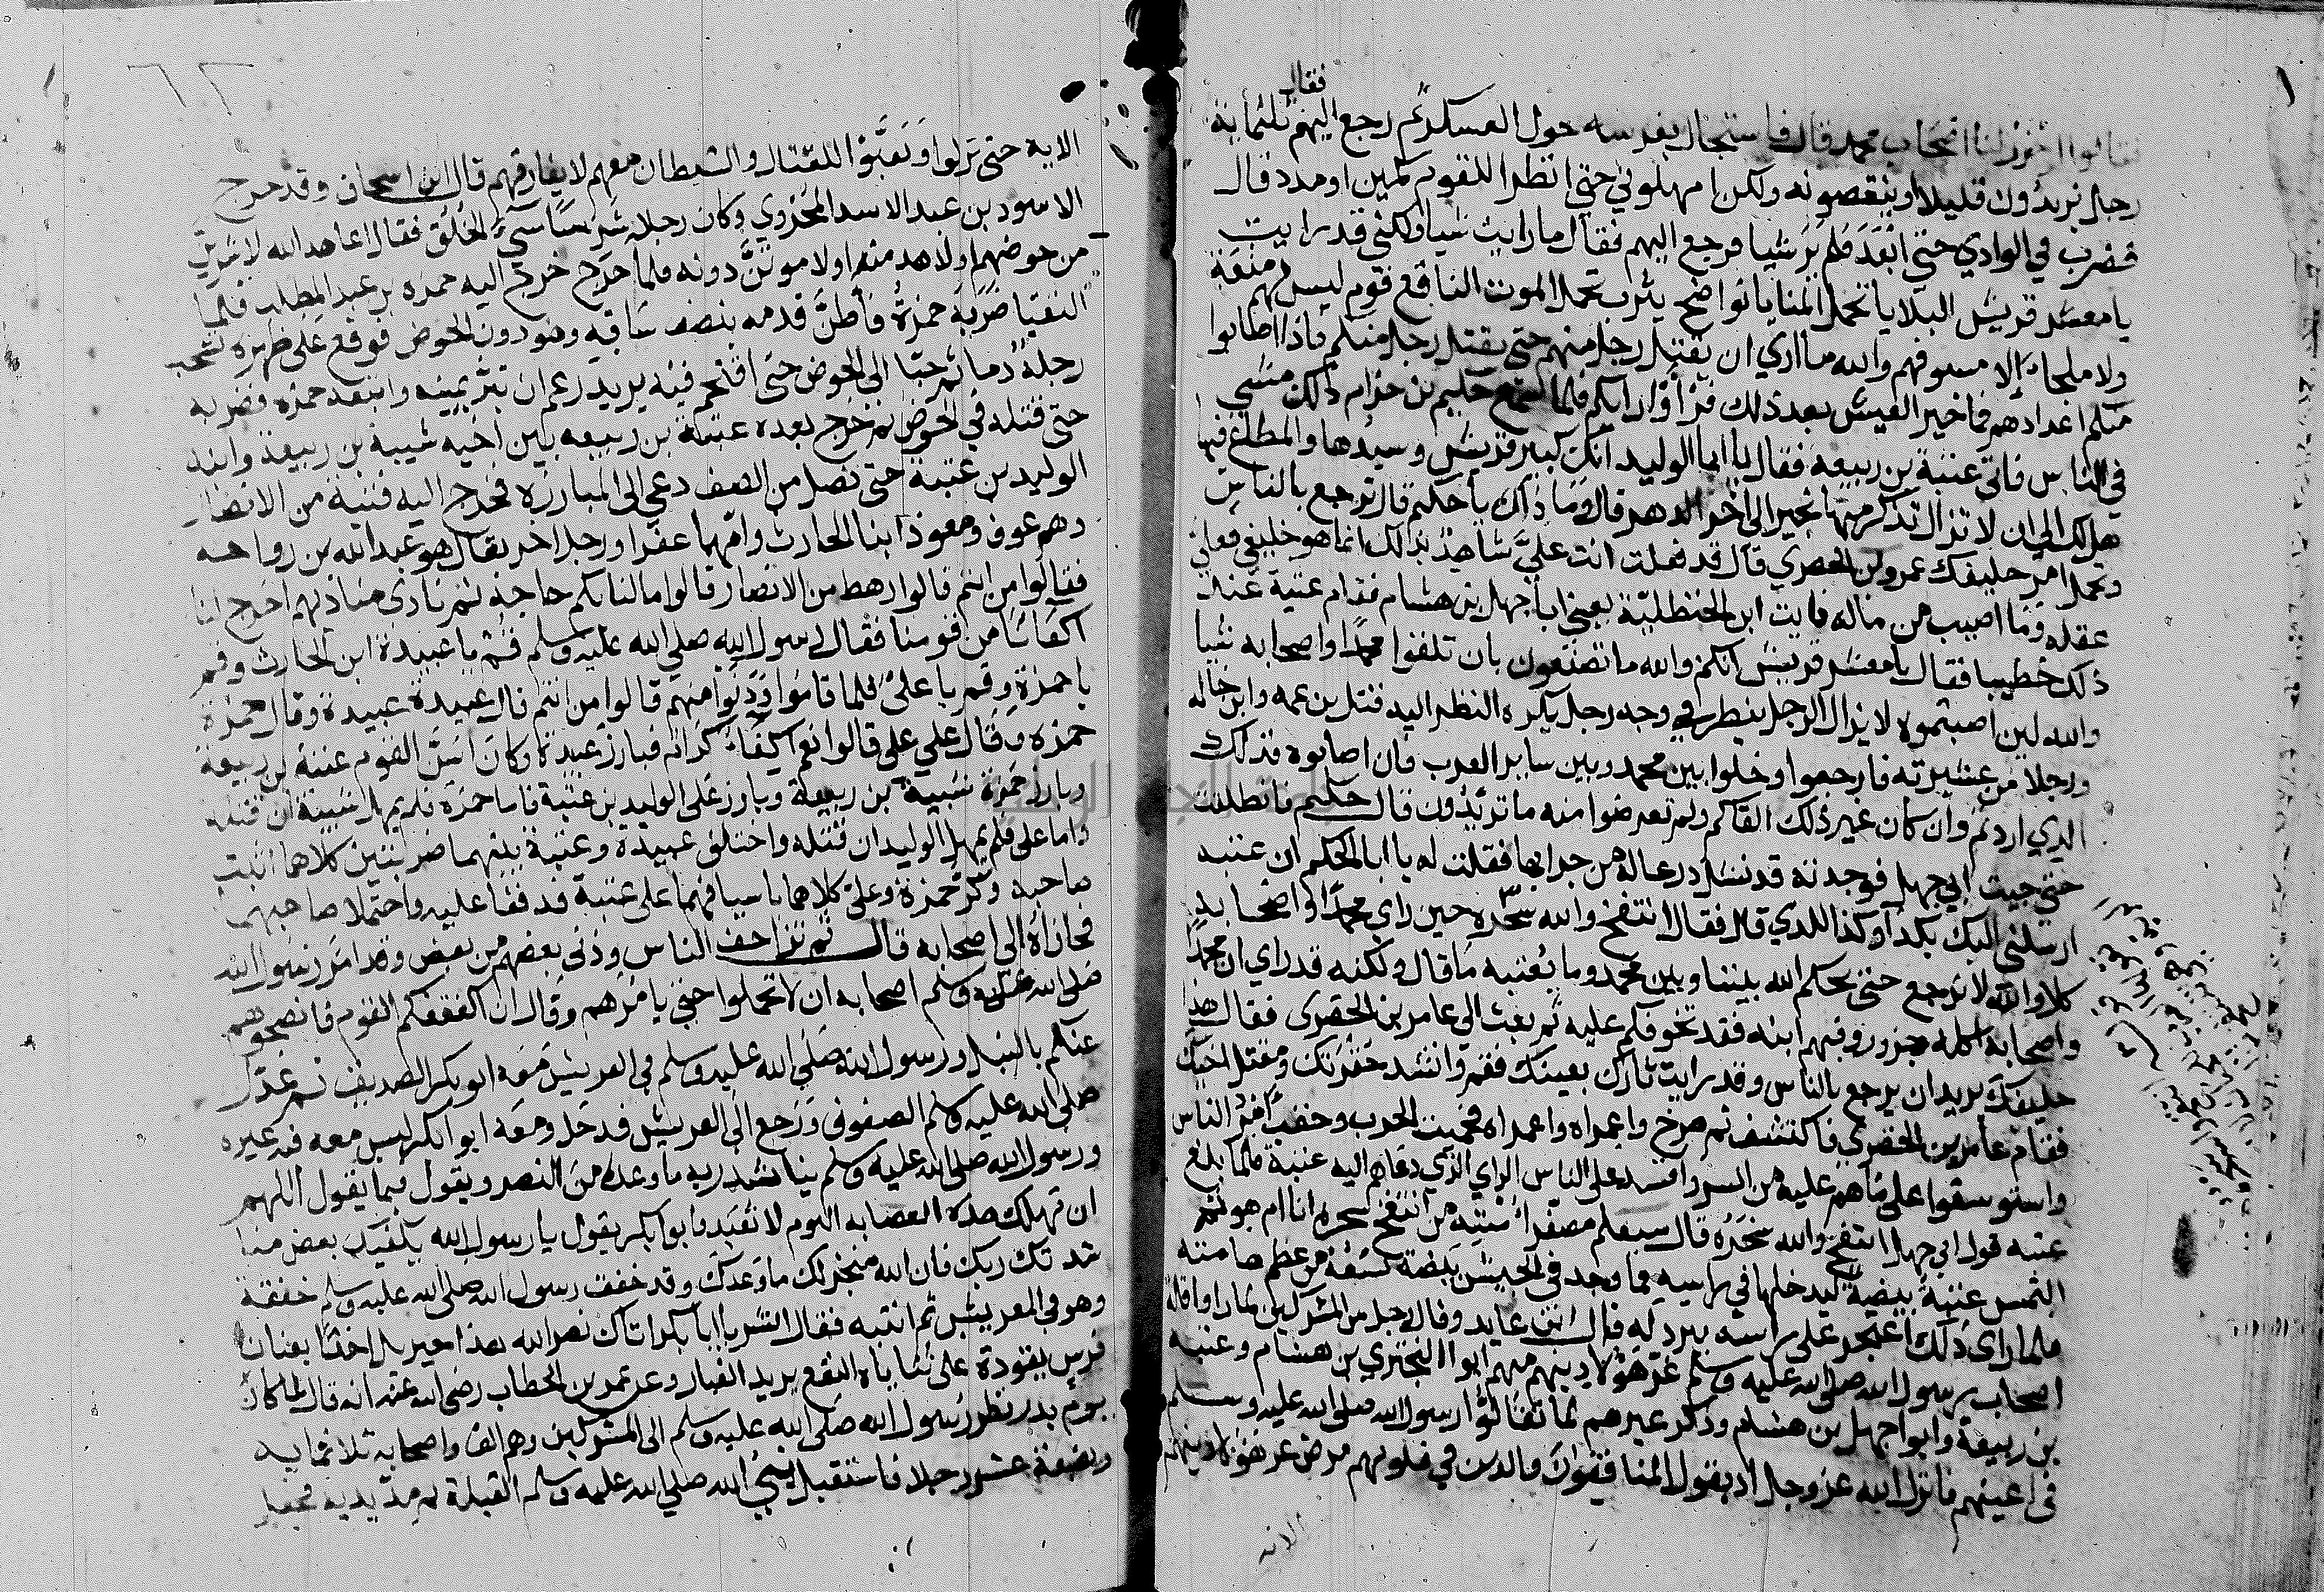 فقال
فقالوا احزر لنا اصحاب محمد قال فاستجال بفرسه حول العسكر ثم رجع اليهم ثلثماية
رجل يزيدون قليلا او ينقصونه ولكن امهلوني حتى انظر اللقوم كمين او مدد قال
فضرب في الوادي حتى ابعد فلم ير شيا فرجع اليهم فقال ما رايت شيا ولكني قد رايت
يا معشر قريش البلايا تحمل المنايا نواضح يثرب تحمل الموت الناقع قوم ليس لهم منعة
ولا ملجاء الا سيوفهم والله ما اري ان يقتل رجل منهم حتى يقتل رجل منكم فاذا اصابوا
منكم اعدادهم فما خير العيش بعد ذلك فروا رايكم فلما سمع حكيم بن حزام ذلك مشى
في الناس فاتى عتبة بن ربيعة فقال يا ابا الوليد انك كبير قريش وسيدها والمطاع فيها
هل لك الي ان لا تزال تذكر منها بخير الى اخر الدهر قال وما ذاك يا حكيم قال ترجع بالناس
وتحمل امر حليفك عمرو بن الحضرمي قال قد فعلت انت عليَّ شاهد بذالك انما هو حليفي فعلي
عقله وما اصيب من ماله فايت ابن الحنظلية يعني ابا جهل بن هشام فقام عتبة عند
ذلك خطيبا فقال يا معشر قريش انكم والله ما تصنعون بان تلقوا محمدا واصحابه شيا
والله لين اصبتموه لا يزال الرجل ينظر في وجه رجل يكره النظر اليه قتل بن عمه وابن خاله
ورجلا من عشيرته فارجعوا وخلوا بين محمد وبين ساير العرب فان اصابوه فذلك
الذي اردتم وان كان غير ذلك الفاكم ولم تعرضوا منه ما تريدون قال حكيم فانطلقت
حتى جيت ابي جهل فوجدته قد نثل درعا له من جرابها فقلت له يا ابا الحكم ان عتبه
ارسلني اليك بكذا وكذا اللذي قال فقال انتفخ والله سحره حين راي محمدا واصحابه
كلا والله لا نرجع حتى يحكم الله بيننا وبين محمد وما بعتبه ما قال ولكنه قد راي ان محمدا
واصحابه اكلة جزور وفيهم ابنه فقد تخوفكم عليه ثم بعث الى عامر بن الحضرمي فقال هذا
حليفك يريد ان يرجع بالناس وقد رايت ثارك بعينك فقم وانشد خفرتك ومقتل اخيك
فقام عامر بن الحضرمي فاكتشف ثم صرخ واعمراه واعمراه فحميت الحرب وحقب امر الناس
واستوسقوا على ما هم عليه من الشر وافسد على الناس الراي الذي دعاهم اليه عتبة فلما بلغ
عتبه قول ابي جهل انتفخ والله سحره قال سيعلم مصفر استه من انتفخ سحره انا ام هو ثم
التمس عتبة بيضة ليدخلها في راسه فما وجد في الجيش بيضة تسعه من عظم هامته
فلما راى ذلك اعتجر على راسه ببرد له قال ابن عايد وقال رجل من المشركين لما راوا قلة
اصحاب رسول الله صلى الله عليه وسلم غر هؤلا دينهم منهم ابوا البختري بن هشام وعتبه
بن ربيعة وابوا جهل بن هشام وذكر غيرهم لما تقالوا رسول الله صلى الله عليه وسلم
في اعينهم فانزل الله عز وجل اذ يقول المنافقون والذين في قلوبهم مرض غر هؤلا دينهم
الايه
الاية حتى نزلوا وتعبوا للقتال والشيطان معهم لا يفارقهم قال ابن اسحاق وقد خرج
الاسود بن عبد الاسد المخزومي وكان رجلا شرسا سيء الخلق فقال اعاهد الله لاشربن
من حوضهم او لاهدمنه او لاموتن دونه فلما خرج خرج اليه حمزه بن عبد المطلب فلما
التقيا ضربه حمزة فأطن قدمه بنصف ساقه وهو دون الحوض فوقع على ظهره تشخب
رجله دما ثم حبا الى الحوض حتى اقتحم فيه يريد زعم ان تبر يمينه واتبعه حمزه فضربه
حتى قتله في الحوض ثم خرج بعده عتبة بن ربيعه بين اخيه شيبة بن ربيعة وابنه
الوليد بن عتبة حتى نصل من الصف دعي الى المبارزه فخرج اليه فتية من الانصار
وهم عوف ومعوذ ابنا الحارث وامهما عفرا ورجل اخر يقال هو عبد الله بن رواحه
فقالوا من انتم قالوا رهط من الانصار قالوا ما لنا بكم حاجة ثم نادى مناديهم اخرج لنا
اكفائنا من قومنا فقال رسول الله صلى الله عليه وسلم قم يا عبيدة ابن الحارث وقم
يا حمزة وقم يا علي فلما قاموا ودنوا منهم قالوا من انتم قال عبيدة عبيدة وقال حمزة
حمزه وقال علي علي قالوا نعم اكفاء كرام فبارز عبيدة وكان اسن القوم عتبة بن ربيعة
وبارز حمزة شيبة بن ربيعة وبارز على الوليد بن عتبة فاما حمزة فلم يمهل شيبة ان قتله
واما على فلم يمهل الوليد ان قتله واختلف عبيدة وعتبة بينهما ضربتين كلاهما اثبت
صاحبه وكر حمزة وعلي كلاهما باسيافهما على عتبة فدففا عليه واحتملا صاحبهما
فحازاه الى اصحابه قال ثم تزاحف الناس ودنى بعضهم من بعض وقد امر رسول الله
صلى الله عليه وسلم اصحابه ان لا تحملوا حتى يامرهم وقال ان اكتنفكم القوم فانضحوهم
عنكم بالنبل ورسول الله صلى الله عليه وسلم في العريش معه ابو بكر الصديق ثم عدل
صلى الله عليه وسلم الصفوف ورجع الى العريش فدخل ومعه ابوا بكر ليس معه فيه غيره
ورسول الله صلى الله عليه وسلم يناشد ربه ما وعده من النصر ويقول فيما يقول اللهم
ان تهلك هذه العصابه اليوم لا تعبد وابوا بكر يقول يا رسول الله يكفيك بعض منا
شدتك ربك فان الله منجز لك ما وعدك وقد خفق رسول الله صلى الله عليه وسلم خفقة
وهو في العريش ثم انتبه فقال ابشر يا ابا بكر اتاك نصر الله هذا جبريل اخذا بعنان
فرس يقوده على ثناياه النقع يريد الغبار وعن عمر بن الخطاب رضى الله عنه انه قال لما كان
يوم بدر نظر رسول الله صلى الله عليه وسلم الى المشركين وهم الف واصحابه ثلاثمايه
وبضعة عشر رجلا فاستقبل نبي الله صلى الله عليه وسلم القبلة ثم مد يديه فجعل